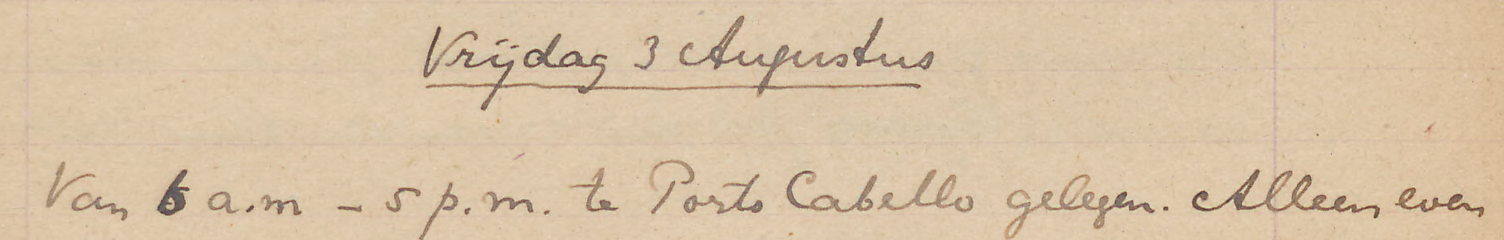 Vrijdag 3 Augustus
Van 6 a.m – 5 p.m. te Porto Cabello gelegen. Alleen even